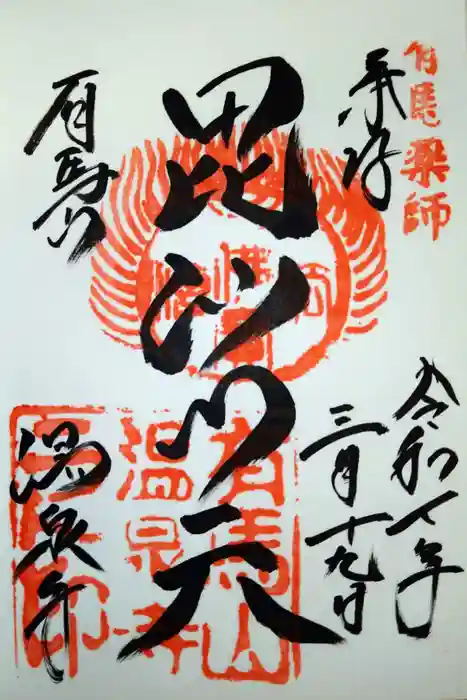 有馬薬師
奉拝
令和八年
三月十九日
毘沙门天
有馬山
温泉寺
有馬山
温泉寺